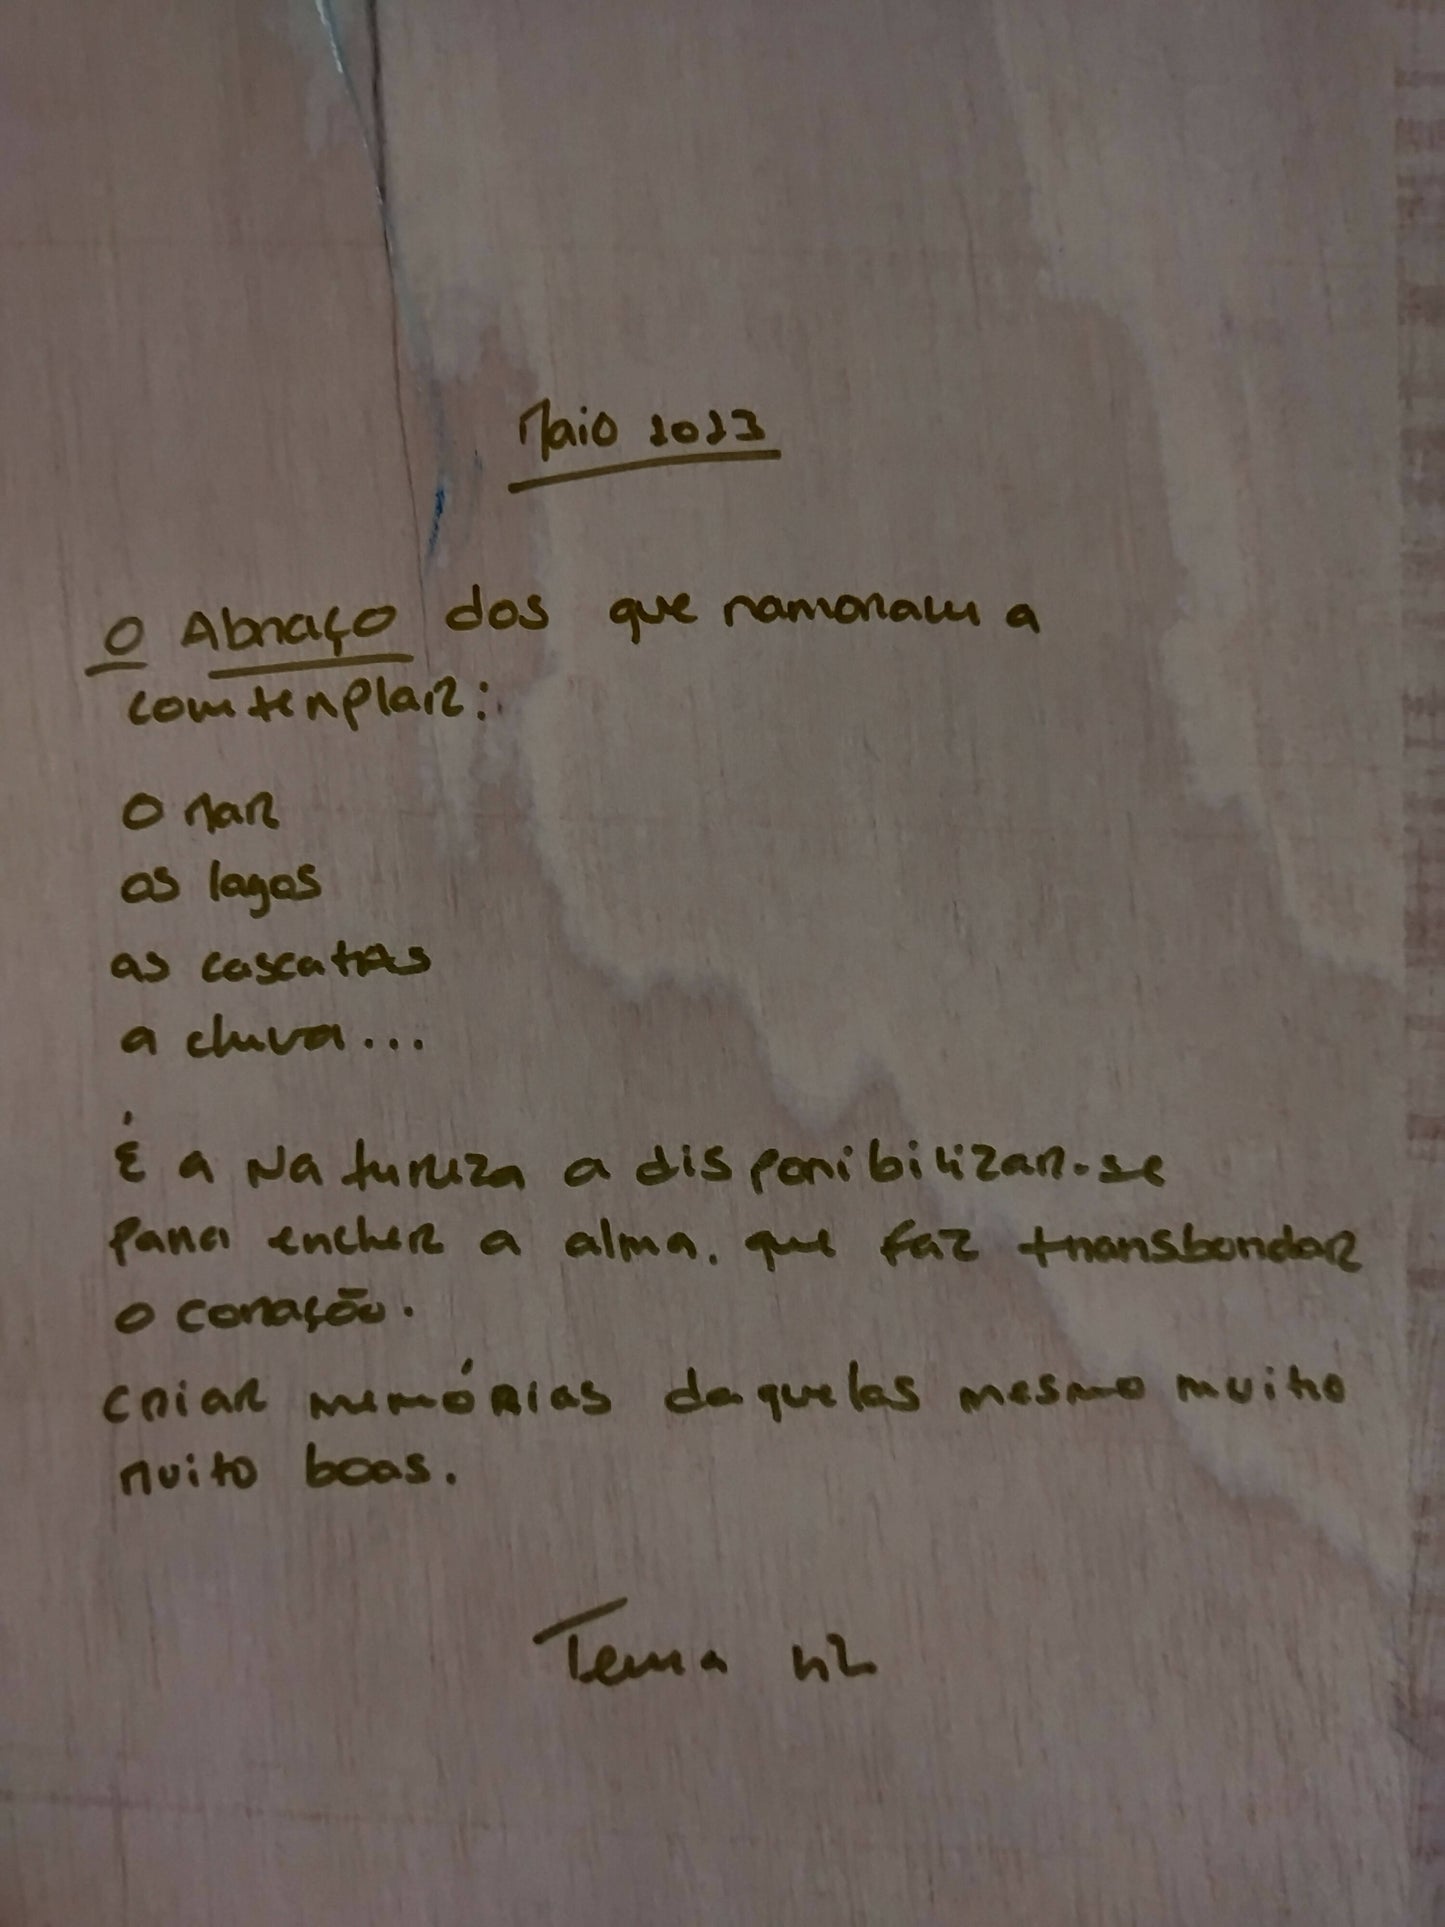 Maio 2023
O Abraço dos que namoram a
comtemplar:
O mar
os lagos
as cascatas
a chuva...
É a Natureza a disponibilizar-se
para encher a alma. que faz transbordar
o coração.
criar memórias daquelas mesmo muito
muito boas.